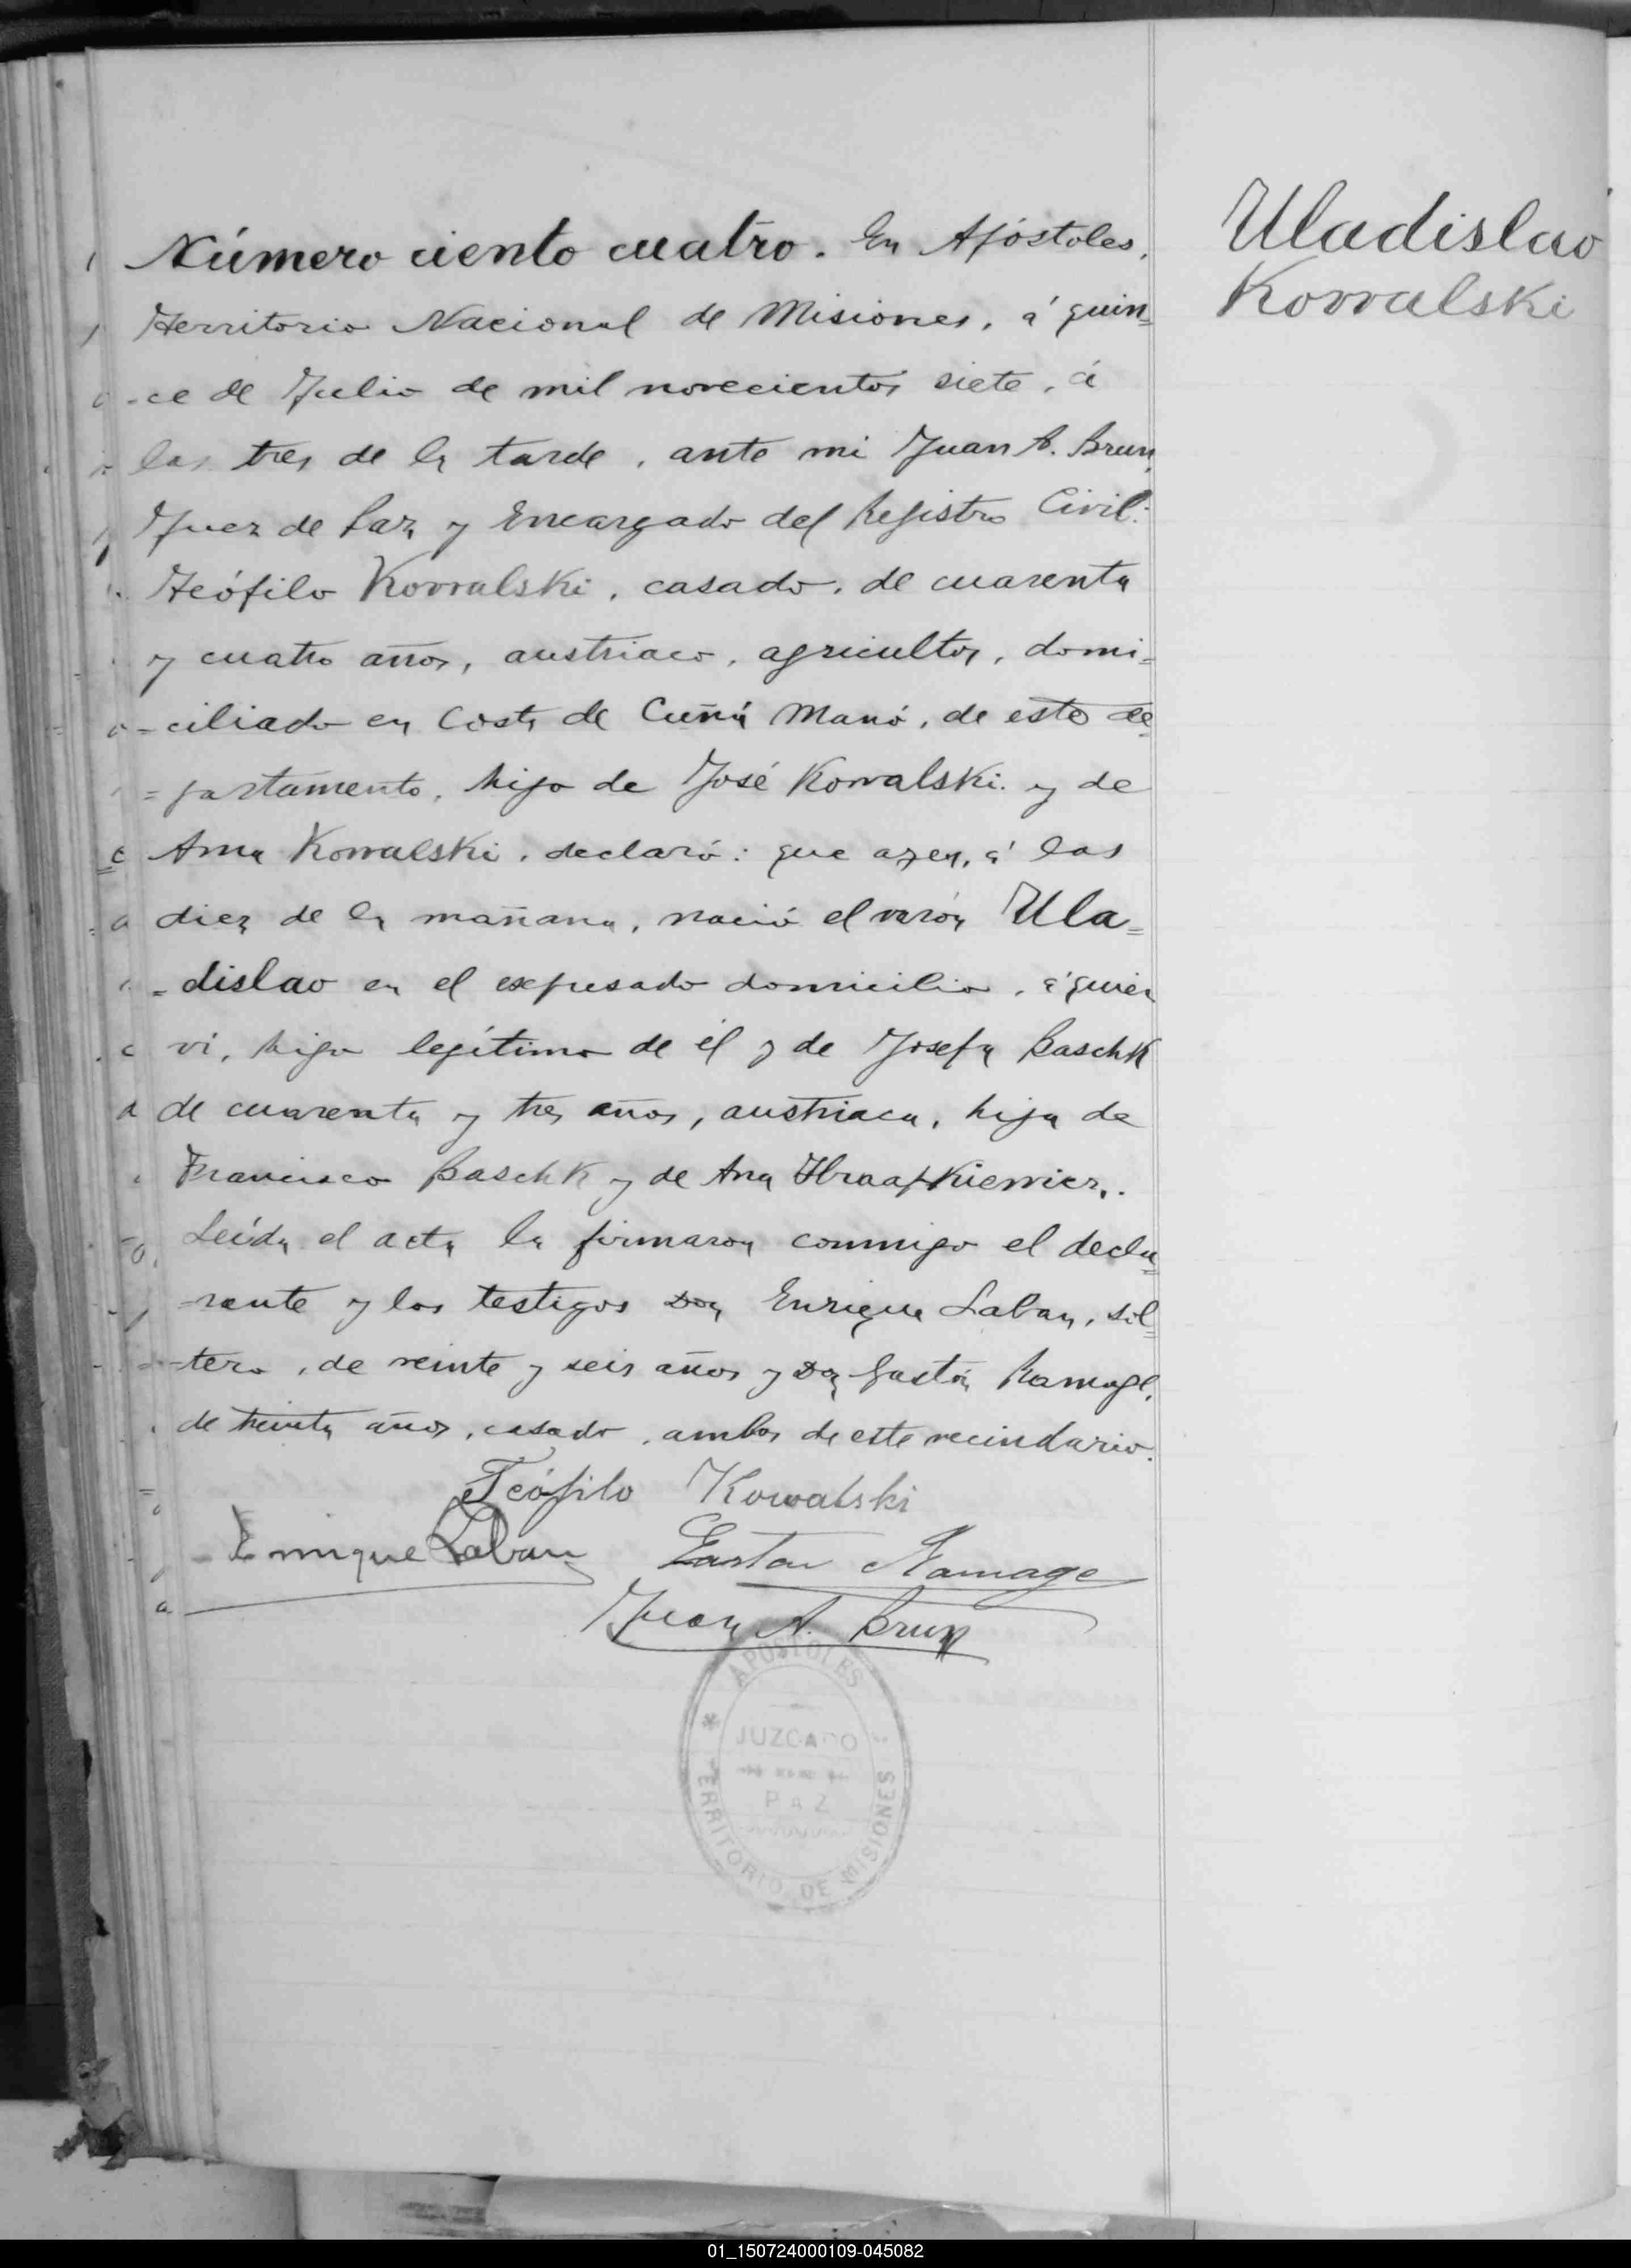 Número ciento cuatro. En Apóstoles,
Territorio Nacional de Misiones, á quin=
-ce de Julio de mil novecientos siete, á
las tres de la tarde, ante mi Juan A. Brun,
Juez de Paz y Encargado del Registro Civil:
Teófilo Kowalski, casado, de cuarenta
y cuatro años, austriaco, agricultor, domi=
=ciliado en Costa de Cuñá Manó, de este de=
=partamento, hijo de José Kowalski y de
Ana Kowalski, declaró: que ayer, á las
diez de la mañana, nació el varón Ula=
=dislao en el expresado domicilio, á quien
vi, hijo legítimo de él y de Josefa Baschk
de cuarenta y tres años, austriaca, hija de
Francisco Baschk y de Ana
Leída el acta la firmaron conmigo el decla=
-rante y los testigos Don Enrique Laban, sol=
=tero, de veinte y seis años y Don Gastón Ramage,
de treinta años, casado, ambos de este vecindario.
Teófilo Kowalski
Enrique Laban Gaston Ramage
Juan A. Brun
APOSTOLES
JUZGADO
PAZ
TERRITORIO DE MISIONES
Uladislao
Kowalski
01_150724000109-045082